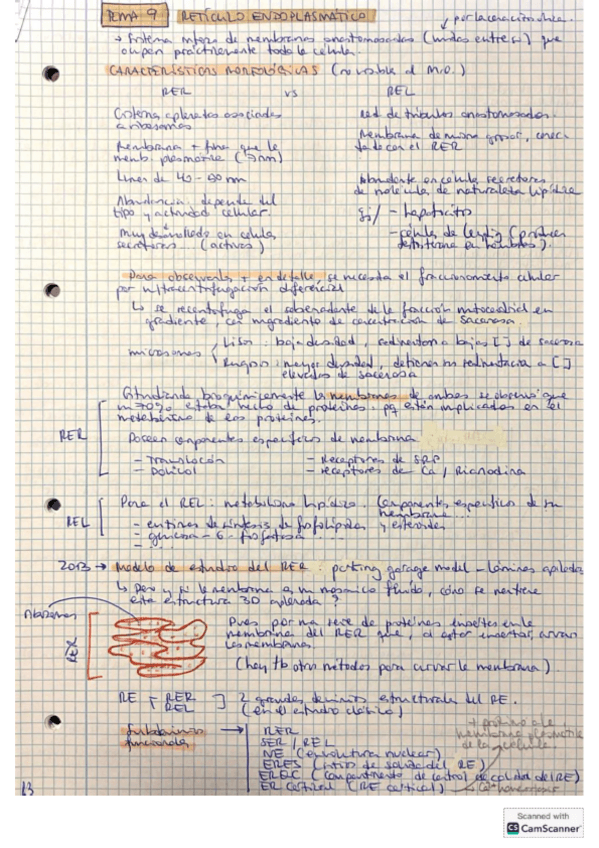 TEMA 9 RETÍCULO ENDOPLASMÁTICO
→ Sistema de membranas anastomosadas (unidas entre sí) que
ocupan prácticamente toda la célula.
CARACTERÍSTICAS MORFOLÓGICAS (no visible al M.O.)
RER vs REL
Cisternas aplanadas asociadas
a ribosomas
red de túbulos anastomosados.
Membrana + fina que la
memb. plasmática (7nm)
Membrana de mismo grosor, conec-
tada con el RER
Lumen de 40-90 nm
Abundancia depende del
tipo y actividad celular.
Abundante en célula secretoras
de molécula de naturaleza lipídica
Ej/ - hepatocito
- células de Leydig (producen
testosterona en hombres).
Muy desarrollado en célula
secretoras (activas)
Para observarlo + en detalle, se necesita el fraccionamiento celular
por ultracentrifugación diferencial
↳ se recentrifuga el sobrenadante de la fracción mitocondrial en
gradiente, con un gradiente de concentración de sacarosa
microsomas
Lisos: baja densidad, sedimentan a bajas [ ] de sacarosa
Rugosos: mayor densidad, detienen su sedimentación a [ ]
elevadas de sacarosa
Estudiando bioquímicamente la membranas de ambos se observó que
un 70% estaba hecho de proteínas. pq están implicados en el
metabolismo de las proteínas.
RER
Poseen componentes específicos de membrana
- Translocón
- Dolicol
- Receptores de SRP
- receptores de Ca / Rianodina
REL
Para el REL: metabolismo lipídico. Componentes específicos de su
membrana...
- enzimas de síntesis de fosfolípidos y esteroides
- glucosa-6-fosfatasa...
- ...
2013 → Modelo de estudio del RER: parking garage model - láminas apiladas
↳ Pero y si la membrana es un mosaico fluido, cómo se mantiene
esta estructura 3D apilada?
ribosomas
Pues por una serie de proteínas insertas en la
membrana del RER que, al estar insertas, curvan
las membrana.
(hay tb otros métodos para curvar la membrana)
RE RER REL ] 2 grandes dominios estructurales del RE.
(en el estudio clásico)
Subdominios
funcionales
→ RER
SER / REL
NE (envoltura nuclear)
ERES (sitios de salida del RE)
ERQC (compartimento de control de calidad del RE)
ER cortical (RE cortical)
+ próximo a la
membrana plasmática
de la célula.
13
Scanned with
CS CamScanner